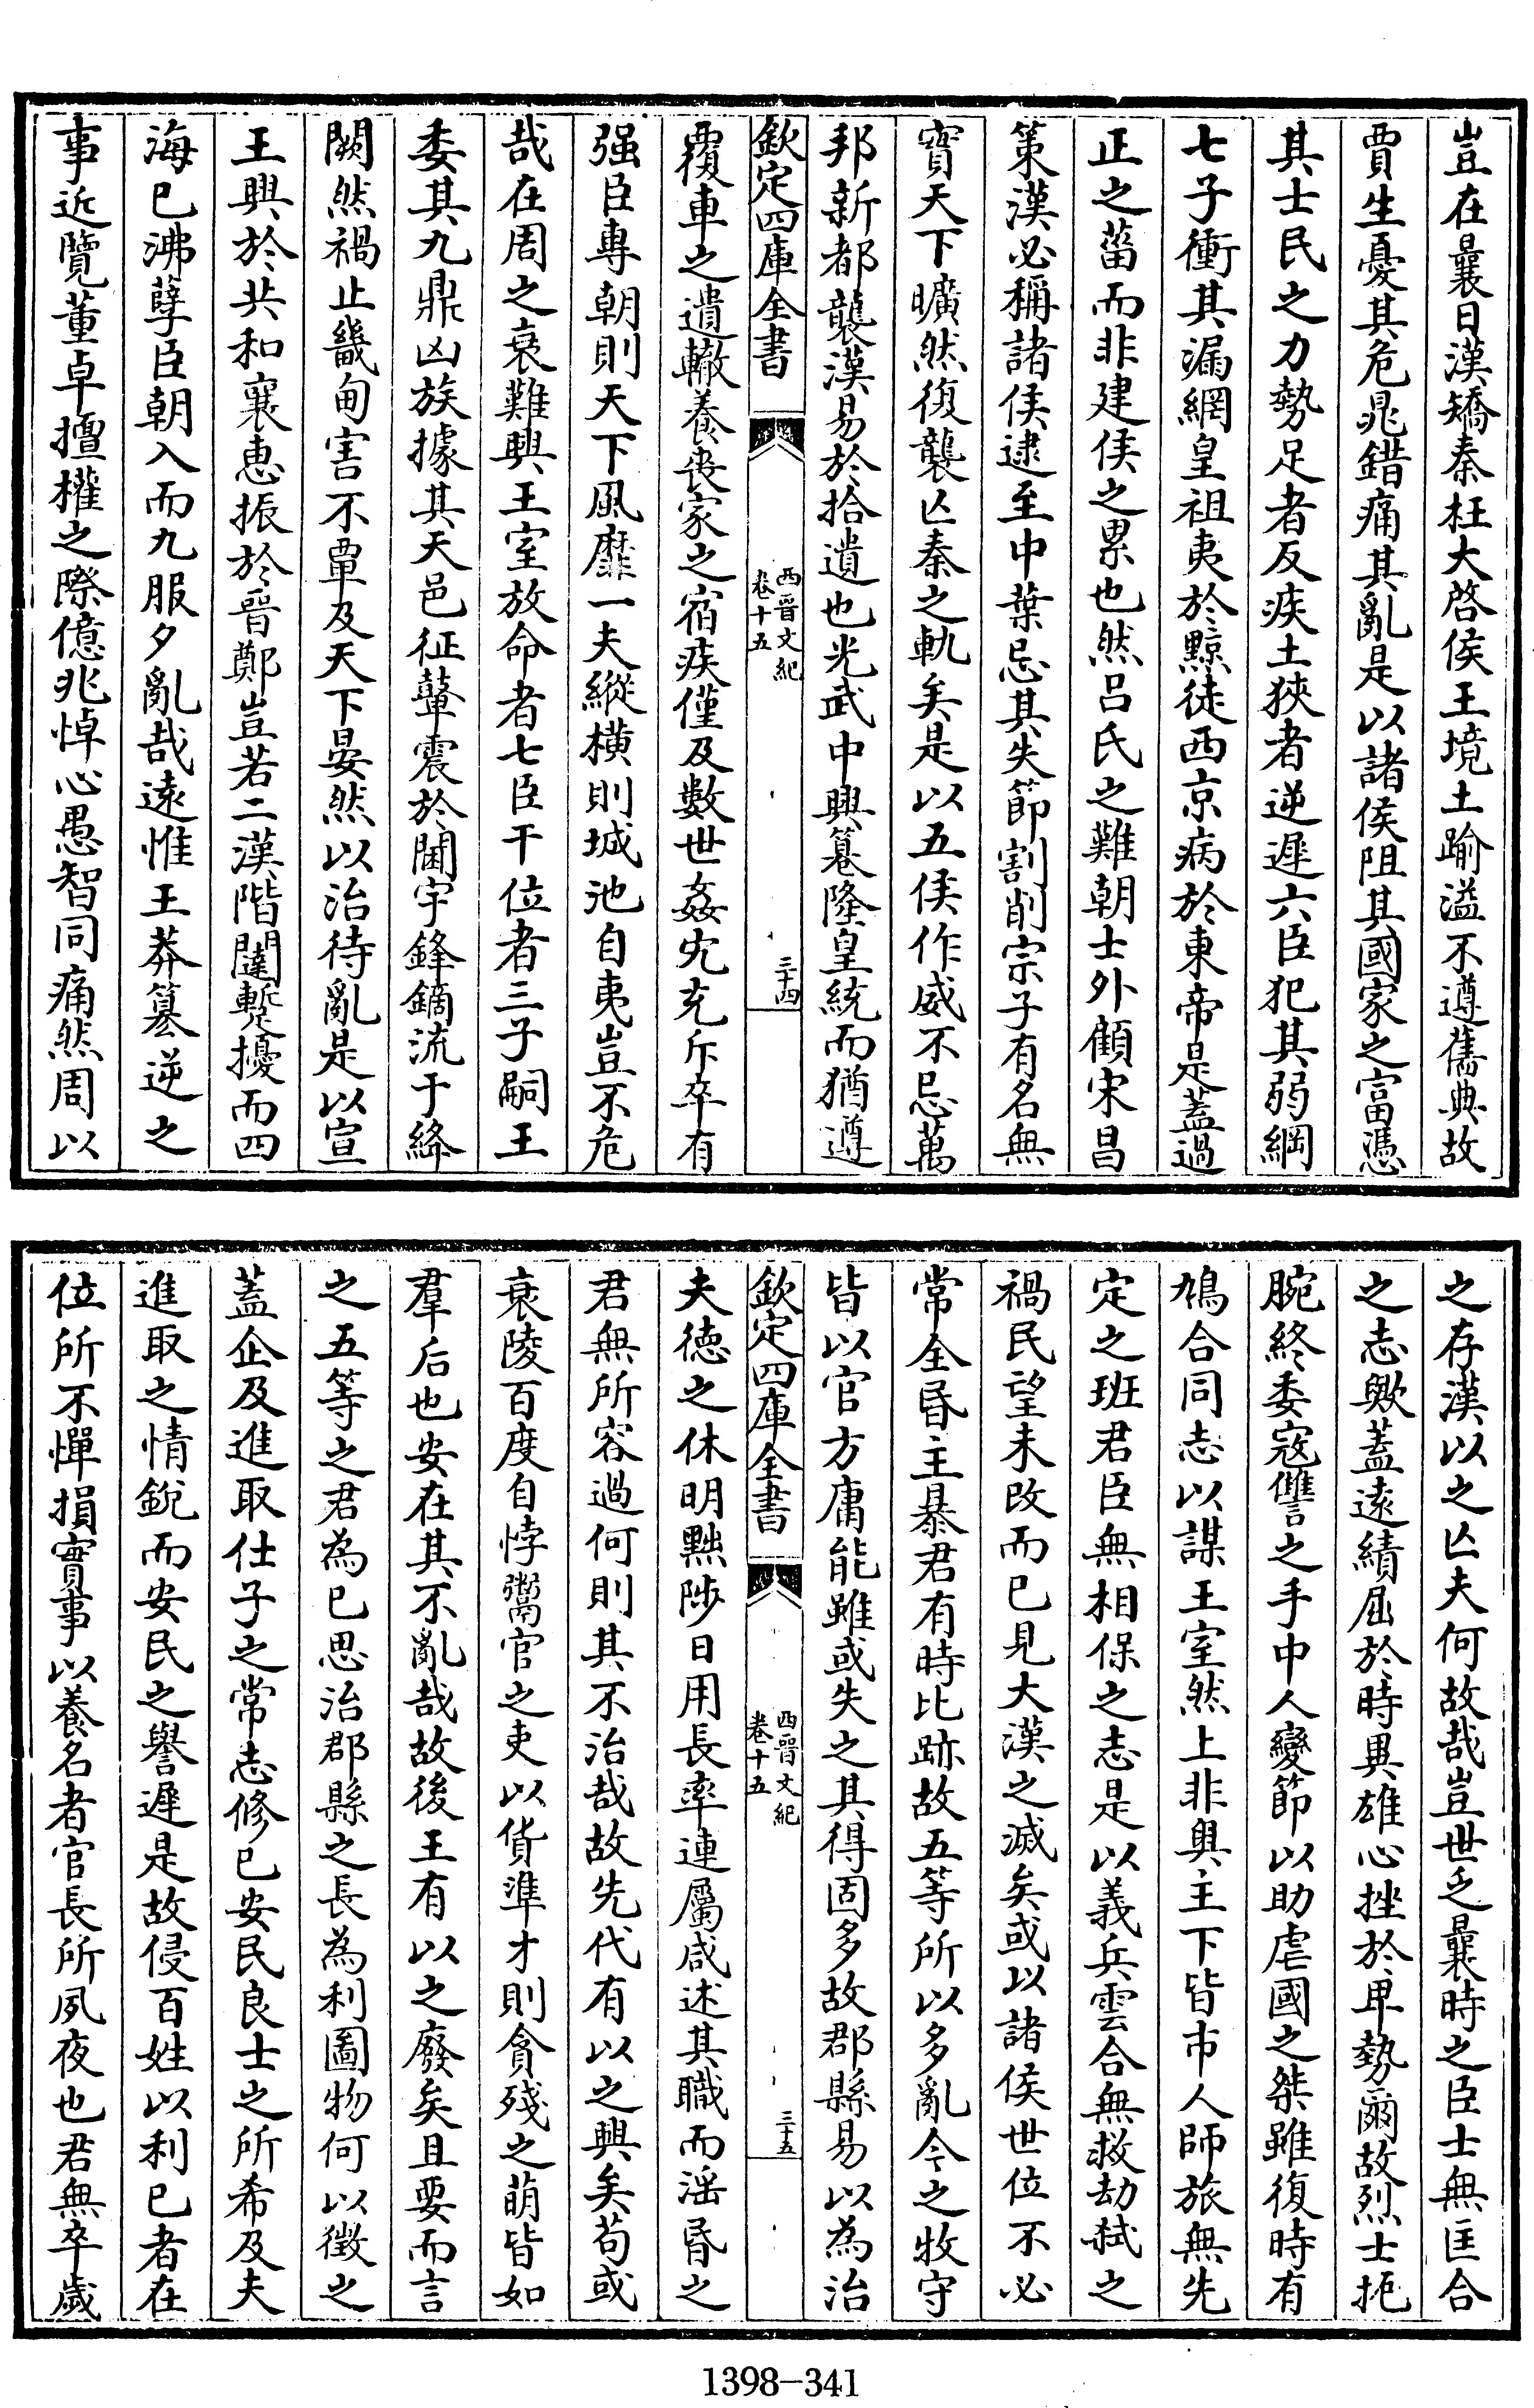 豈在曩日漢矯秦枉大啓侯王境土踰溢不遵舊典故
賈生憂其危晁錯痛其亂是以諸侯阻其國家之富憑
其士民之力勢足者反疾土狹者逆遲六臣犯其弱綱
七子衝其漏網皇祖夷於黥徒西京病於東帝是蓋過
正之菑而非建侯之累也然呂氏之難朝士外顧宋昌
策漢必稱諸侯逮至中葉忌其失節割削宗子有名無
實天下曠然復襲亾秦之軌矣是以五侯作威不忌萬
邦新都襲漢易於拾遺也光武中興篡隆皇統而猶遵
欽定四庫全書
西晉文紀
卷十五
三十四
覆車之遺轍養喪家之宿疾僅及數世姦宄充斥卒有
强臣專朝則天下風靡一夫縱橫則城池自夷豈不危
哉在周之衰難興王室放命者七臣干位者三子嗣王
委其九鼎凶族據其天邑征鼙震於閫宇鋒鏑流于絳
闕然禍止畿甸害不覃及天下晏然以治待亂是以宣
王興於共和襄惠振於晉鄭豈若二漢階闥蹔擾而四
海已沸孽臣朝入而九服夕亂哉遠惟王莽篡逆之
事近覽董卓擅權之際億兆悼心愚智同痛然周以
之存漢以之亾夫何故哉豈世乏曩時之臣士無匡合
之志歟蓋遠績屈於時異雄心挫於卑勢爾故烈士扼
腕終委寇讐之手中人變節以助虐國之桀雖復時有
鳩合同志以謀王室然上非奥主下皆市人師旅無先
定之班君臣無相保之志是以義兵雲合無救劫弑之
禍民望未改而已見大漢之滅矣或以諸侯世位不必
常全昏主暴君有時比跡故五等所以多亂今之牧守
皆以官方庸能雖或失之其得固多故郡縣易以為治
欽定四庫全書
西晉文紀
卷十五
三十五
夫德之休明黜陟日用長率連屬咸述其職而淫昏之
君無所容過何則其不治哉故先代有以之興矣苟或
衰陵百度自悖鬻官之吏以貨準才則貪殘之萌皆如
羣后也安在其不亂哉故後王有以之廢矣且要而言
之五等之君為已思治郡縣之長為利圖物何以徵之
蓋企及進取仕子之常志修已安民良士之所希及夫
進取之情銳而安民之譽遲是故侵百姓以利已者在
位所不憚損實事以養名者官長所夙夜也君無卒歲
1398-341